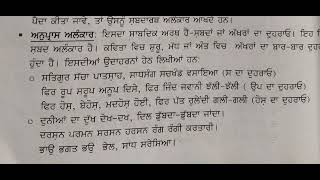 ਪੈਦਾ ਕੀਤਾ ਜਾਵੇ, ਤਾਂ ਉਸਨੂੰ ਸ਼ਬਦਾਰਥ ਅਲੰਕਾਰ ਆਖਦੇ ਹਨ।
• ਅਨੁਪ੍ਰਾਸ ਅਲੰਕਾਰ: ਇਸਦਾ ਸ਼ਾਬਦਿਕ ਅਰਥ ਹੈ-ਸ਼ਬਦਾਂ ਜਾਂ ਅੱਖਰਾਂ ਦਾ ਦੁਹਰਾਓ। ਇਹ
ਸ਼ਬਦ ਅਲੰਕਾਰ ਹੈ। ਕਵਿਤਾ ਵਿਚ ਸ਼ੁਰੂ, ਮੱਧ ਜਾਂ ਅੰਤ ਵਿਚ ਅੱਖਰਾਂ ਦਾ ਬਾਰ-ਬਾਰ ਦੁਹਰਾ
ਹੁੰਦਾ ਹੈ। ਇਸਦੀਆਂ ਉਦਾਹਰਨਾਂ ਹੇਠ ਲਿਖੀਆਂ ਹਨ:
○ ਸਤਿਗੁਰ ਸੱਚਾ ਪਾਤਸ਼ਾਹ, ਸਾਧਸੰਗ ਸਚਖੰਡ ਵਸਾਇਆ (ਸ ਦਾ ਦੁਹਰਾਓ)
ਫਿਰ ਰੂਪ ਸਰੂਪ ਅਨੂਪ ਦਿਸੇ, ਫਿਰ ਜਿੰਦ ਜਵਾਨੀ ਝੱਲੀ-ਝੱਲੀ ( ਉਪ ਦਾ ਦੁਹਰਾਓ)
ਫਿਰ ਹੋਸ਼, ਬੇਹੋਸ਼, ਮਦਹੋਸ਼ ਹੋਈ, ਫਿਰ ਪੱਤ ਰੁਲੇਂਦੀ ਗਲੀ-ਗਲੀ (ਹੋਸ਼ ਦਾ ਦੁਹਰਾਓ)
○ ਦੁਨੀਆਂ ਦਾ ਦੁੱਖ ਦੇਖ-ਦੇਖ, ਦਿਲ ਡੁੱਬਦਾ-ਡੁੱਬਦਾ ਜਾਂਦਾ।
ਦਰਸਨ ਪਰਸਨ ਸਰਸਨ ਹਰਸਨ ਰੰਗ ਰੰਗੀ ਕਰਤਾਰੀ।
ਭਾਉ ਭਗਤ ਭਉ ਭੇਲ, ਸਾਧ ਸਰੇਸਿਆ।